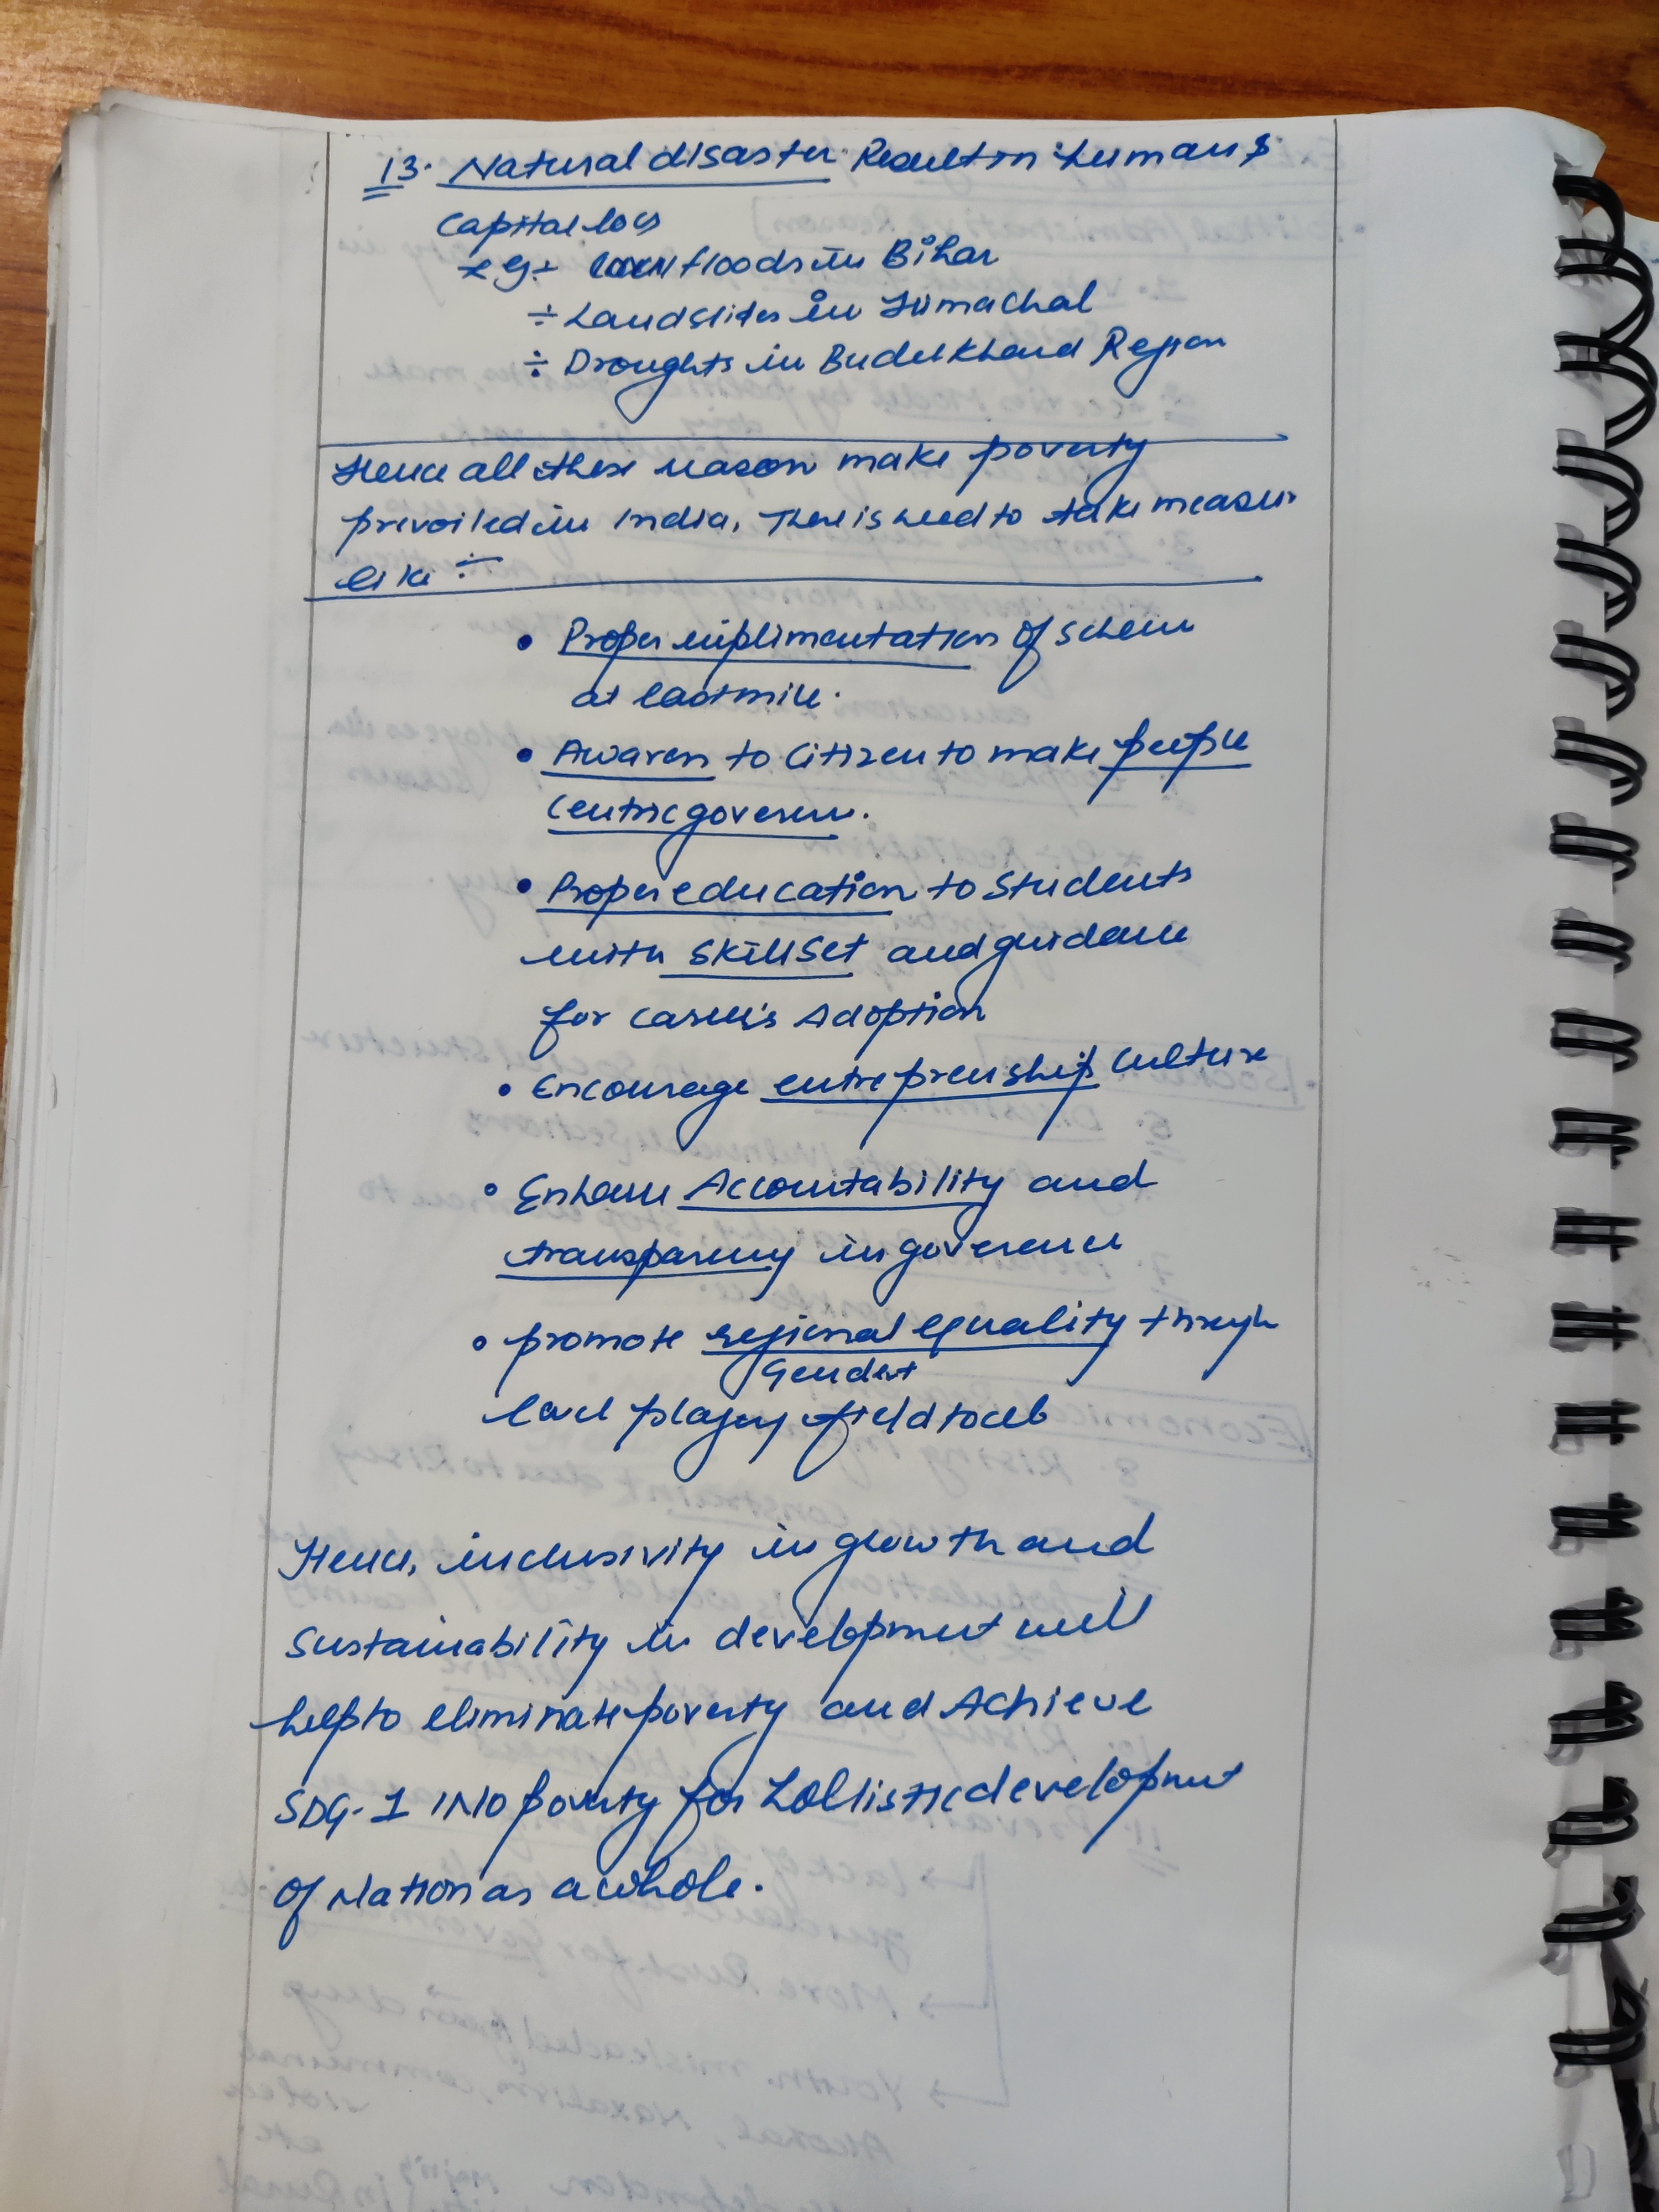 13. Natural disaster Result in human &
capital loss
eg ÷ floods in Bihar
÷ Landslides in Himachal
÷ Droughts in Budelkhand Region
Hence all these reason make poverty
prevailed in India, There is need to take measur
like ÷
• Proper implimentation of scheme
at last mile.
• Awaren to Citizen to make people
centric govern.
• Proper education to students
with skillset and guidance
for Adoption
• Encourage entreprenship culture
• Enhance Accountability and
transparency in goverence
• promote regional equality through
Gender
level playing field to all
Hence, inclusivity in growth and
Sustainability in development will
help to eliminate poverty and Achieve
SDG-1 No poverty for hollistic development
of Nation as a whole.